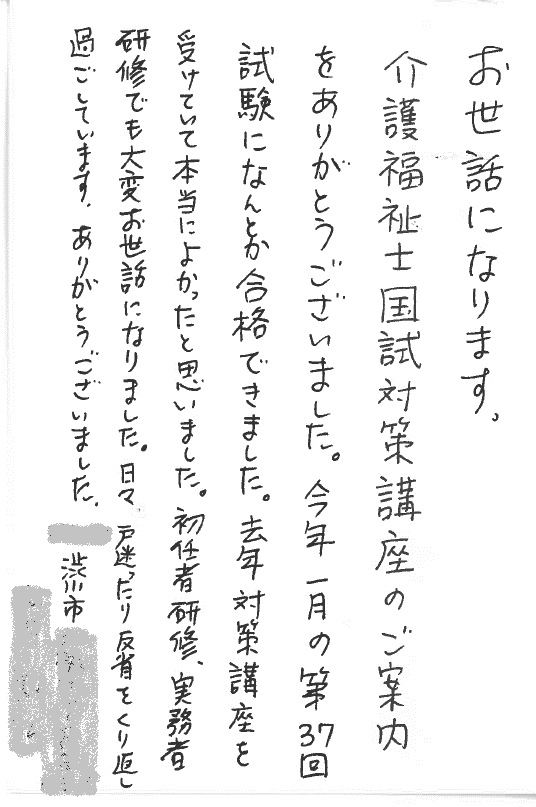 お世話になります。
介護福祉士国試対策講座のご案内
をありがとうございました。今年一月の第37回
試験になんとか合格できました。去年対策講座を
受けていて本当によかったと思いました。初任者研修、実務者
研修でも大変お世話になりました。日々、戸迷ったり反省をくり返し
過ごしています。ありがとうございました。
渋川市